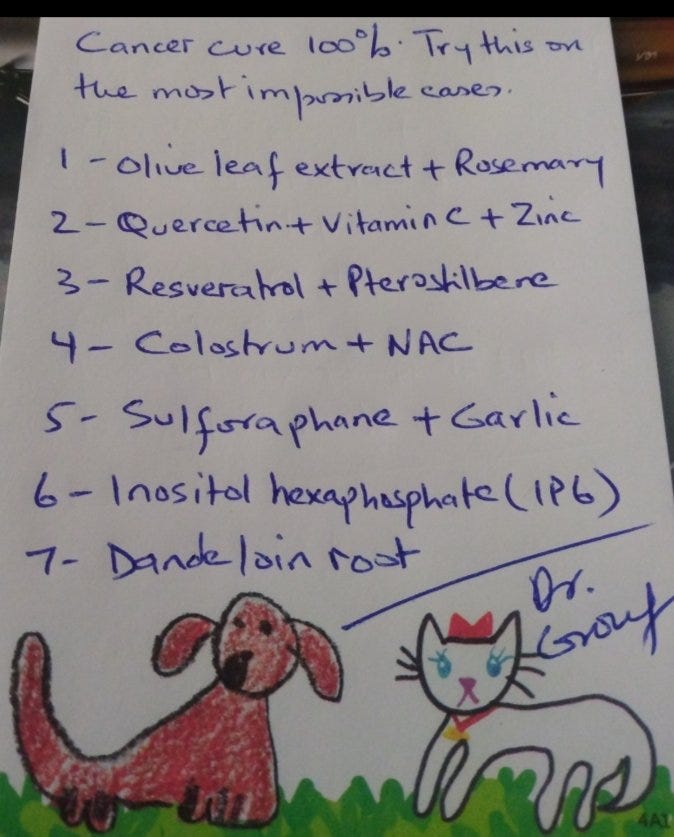 Cancer cure 100%. Try this on
the most impossible cases.
1 - Olive leaf extract + Rosemary
2 - Quercetin + Vitamin C + Zinc
3 - Resveratrol + Pterostilbene
4 - Colostrum + NAC
5 - Sulforaphane + Garlic
6 - Inositol hexaphosphate (IP6)
7 - Dandeloin root
Dr.
Group
4A1